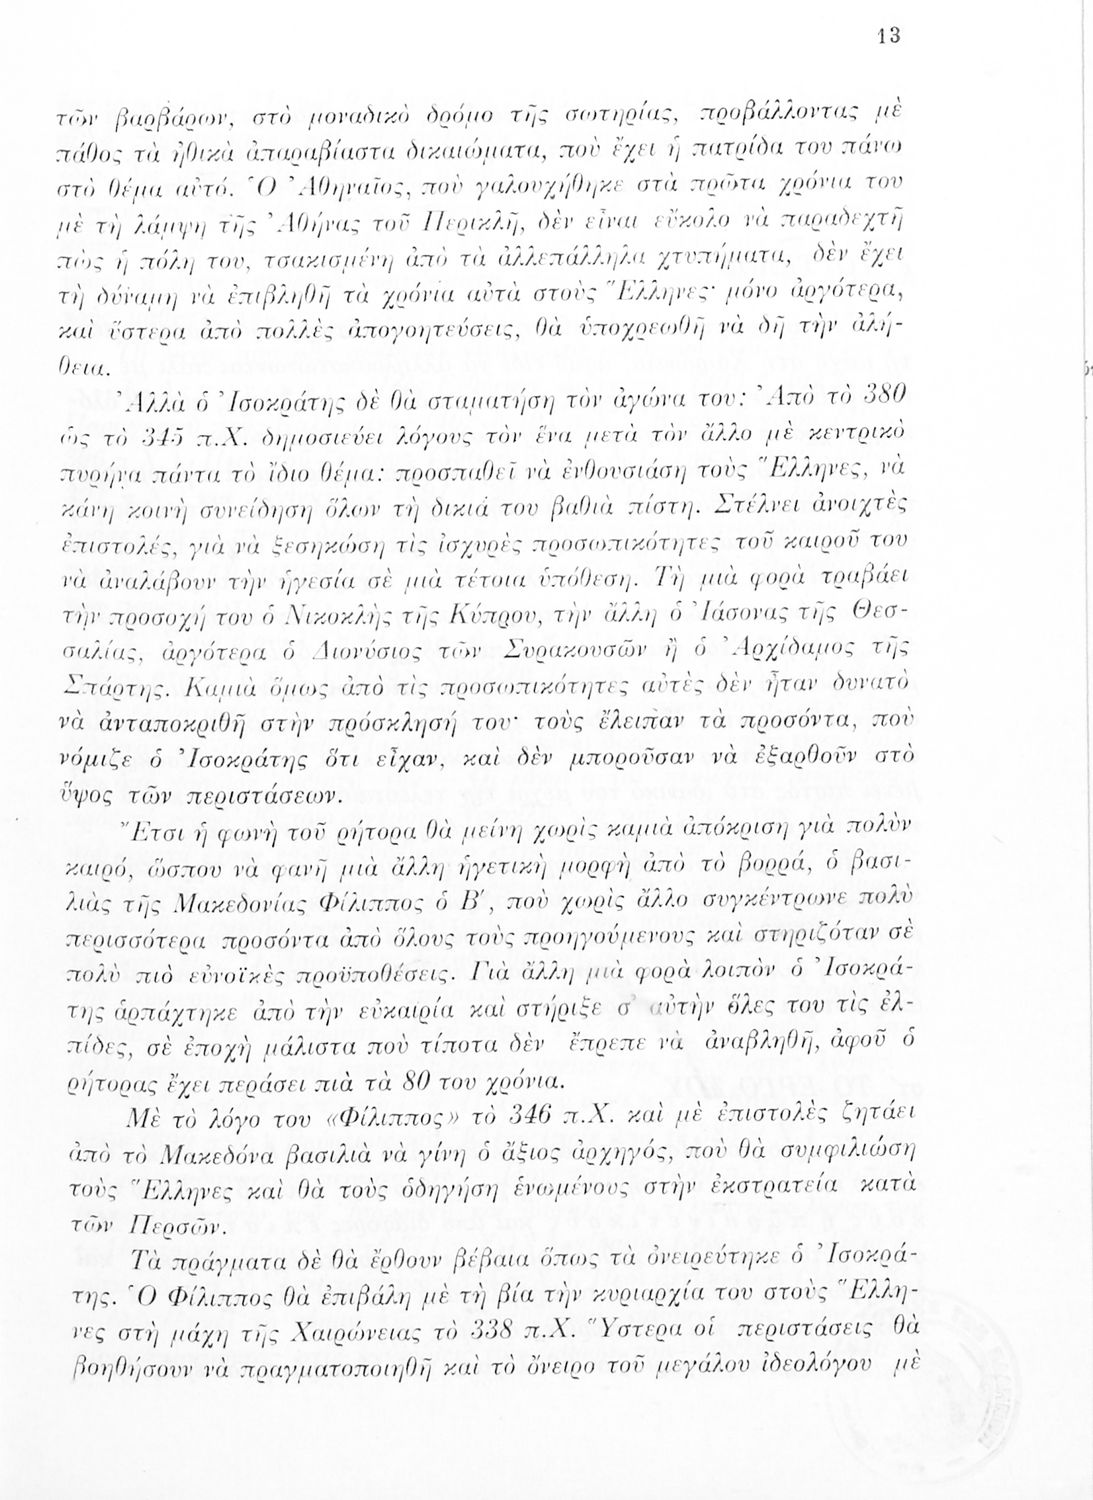 13
τῶν βαρβάρων, στὸ μοναδικὸ δρόμο τῆς σωτηρίας, προβάλλοντας μὲ
πάθος τὰ ἠθικὰ ἀπαραβίαστα δικαιώματα, ποὺ ἔχει ἡ πατρίδα του πάνω
στὸ θέμα αὐτό. Ὁ Ἀθηναῖος, ποὺ γαλουχήθηκε στὰ πρῶτα χρόνια του
μὲ τὴ λάμψη τῆς Ἀθήνας τοῦ Περικλῆ, δὲν εἶναι εὔκολο νὰ παραδεχτῆ
πὼς ἡ πόλη του, τσακισμένη ἀπὸ τὰ ἀλλεπάλληλα χτυπήματα, δὲν ἔχει
τὴ δύναμη νὰ ἐπιβληθῆ τὰ χρόνια αὐτὰ στοὺς Ἕλληνες· μόνο ἀργότερα,
καὶ ὕστερα ἀπὸ πολλὲς ἀπογοητεύσεις, θὰ ὑποχρεωθῆ νὰ δῆ τὴν ἀλή-
θεια.
Ἀλλὰ ὁ Ἰσοκράτης δὲ θὰ σταματήση τὸν ἀγώνα του: Ἀπὸ τὸ 380
ὡς τὸ 345 π.Χ. δημοσιεύει λόγους τὸν ἕνα μετὰ τὸν ἄλλο μὲ κεντρικὸ
πυρήνα πάντα τὸ ἴδιο θέμα: προσπαθεῖ νὰ ἐνθουσιάση τοὺς Ἕλληνες, νὰ
κάνη κοινὴ συνείδηση ὅλων τὴ δικιά του βαθιὰ πίστη. Στέλνει ἀνοιχτὲς
ἐπιστολές, γιὰ νὰ ξεσηκώση τὶς ἰσχυρὲς προσωπικότητες τοῦ καιροῦ του
νὰ ἀναλάβουν τὴν ἡγεσία σὲ μιὰ τέτοια ὑπόθεση. Τὴ μιὰ φορὰ τραβάει
τὴν προσοχή του ὁ Νικοκλὴς τῆς Κύπρου, τὴν ἄλλη ὁ Ἰάσονας τῆς Θεσ-
σαλίας, ἀργότερα ὁ Διονύσιος τῶν Συρακουσῶν ἢ ὁ Ἀρχίδαμος τῆς
Σπάρτης. Καμιὰ ὅμως ἀπὸ τὶς προσωπικότητες αὐτὲς δὲν ἦταν δυνατὸ
νὰ ἀνταποκριθῆ στὴν πρόσκλησή του· τοὺς ἔλειπαν τὰ προσόντα, ποὺ
νόμιζε ὁ Ἰσοκράτης ὅτι εἶχαν, καὶ δὲν μποροῦσαν νὰ ἐξαρθοῦν στὸ
ὕψος τῶν περιστάσεων.
Ἔτσι ἡ φωνὴ τοῦ ρήτορα θὰ μείνη χωρὶς καμιὰ ἀπόκριση γιὰ πολὺν
καιρό, ὥσπου νὰ φανῆ μιὰ ἄλλη ἡγετικὴ μορφὴ ἀπὸ τὸ βορρά, ὁ βασι-
λιὰς τῆς Μακεδονίας Φίλιππος ὁ Β′, ποὺ χωρὶς ἄλλο συγκέντρωνε πολὺ
περισσότερα προσόντα ἀπὸ ὅλους τοὺς προηγούμενους καὶ στηριζόταν σὲ
πολὺ πιὸ εὐνοϊκὲς προϋποθέσεις. Γιὰ ἄλλη μιὰ φορὰ λοιπὸν ὁ Ἰσοκρά-
της ἁρπάχτηκε ἀπὸ τὴν εὐκαιρία καὶ στήριξε σ' αὐτὴν ὅλες του τὶς ἐλ-
πίδες, σὲ ἐποχὴ μάλιστα ποὺ τίποτα δὲν ἔπρεπε νὰ ἀναβληθῆ, ἀφοῦ ὁ
ρήτορας ἔχει περάσει πιὰ τὰ 80 του χρόνια.
Μὲ τὸ λόγο του «Φίλιππος» τὸ 346 π.Χ. καὶ μὲ ἐπιστολὲς ζητάει
ἀπὸ τὸ Μακεδόνα βασιλιὰ νὰ γίνη ὁ ἄξιος ἀρχηγός, ποὺ θὰ συμφιλιώση
τοὺς Ἕλληνες καὶ θὰ τοὺς ὁδηγήση ἑνωμένους στὴν ἐκστρατεία κατὰ
τῶν Περσῶν.
Τὰ πράγματα δὲ θὰ ἔρθουν βέβαια ὅπως τὰ ὀνειρεύτηκε ὁ Ἰσοκρά-
της. Ὁ Φίλιππος θὰ ἐπιβάλη μὲ τὴ βία τὴν κυριαρχία του στοὺς Ἕλλη-
νες στὴ μάχη τῆς Χαιρώνειας τὸ 338 π.Χ. Ὕστερα οἱ περιστάσεις θὰ
βοηθήσουν νὰ πραγματοποιηθῆ καὶ τὸ ὄνειρο τοῦ μεγάλου ἰδεολόγου μὲ